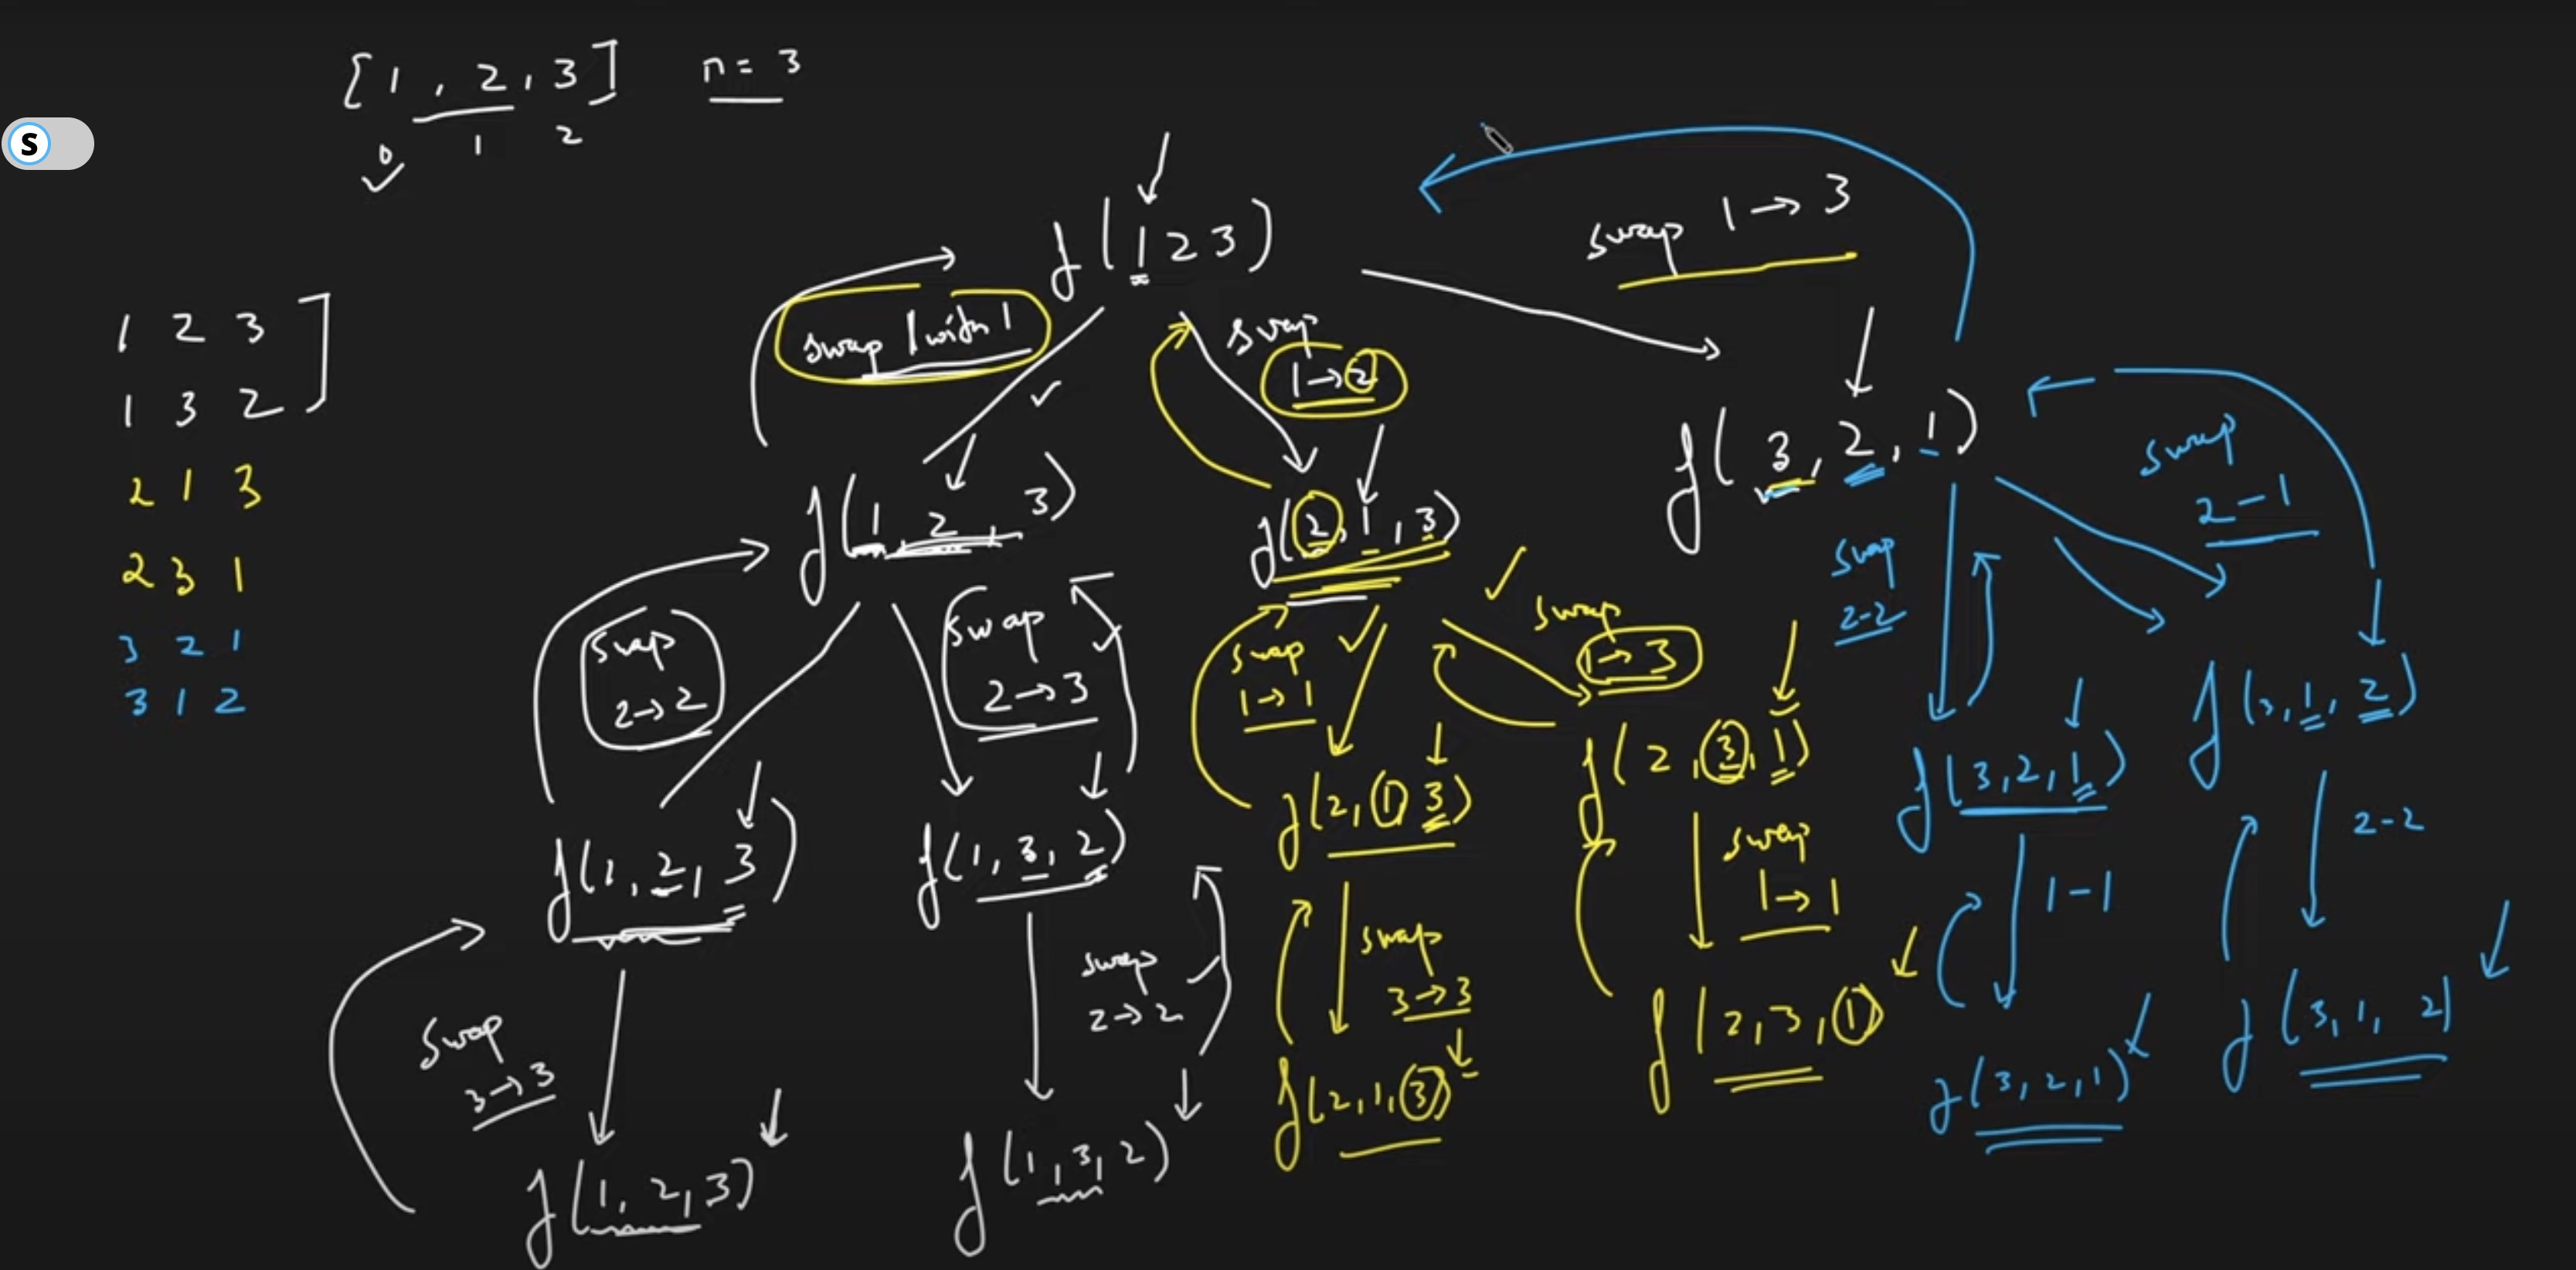 [1, 2, 3] n = 3
0 1 2
S
swap 1 → 3
f(1 2 3)
swap 1 with 1
swap
1 → 2
1 2 3
1 3 2
2 1 3
2 3 1
3 2 1
3 1 2
f(1, 2, 3)
f(2, 1, 3)
f(3, 2, 1)
swap
2 → 2
swap
2 → 3
swap
1 → 1
swap
1 → 3
swap
2-2
swap
2-1
f(1, 2, 3)
f(1, 3, 2)
f(2, 1 3)
f(2, 3, 1)
f(3, 2, 1)
f(3, 1, 2)
swap
3 → 3
swap
2 → 2
swap
3 → 3
swap
1 → 1
1-1
2-2
f(1, 2, 3)
f(1, 3, 2)
f(2, 1, 3)
f(2, 3, 1)
f(3, 2, 1)
f(3, 1, 2)